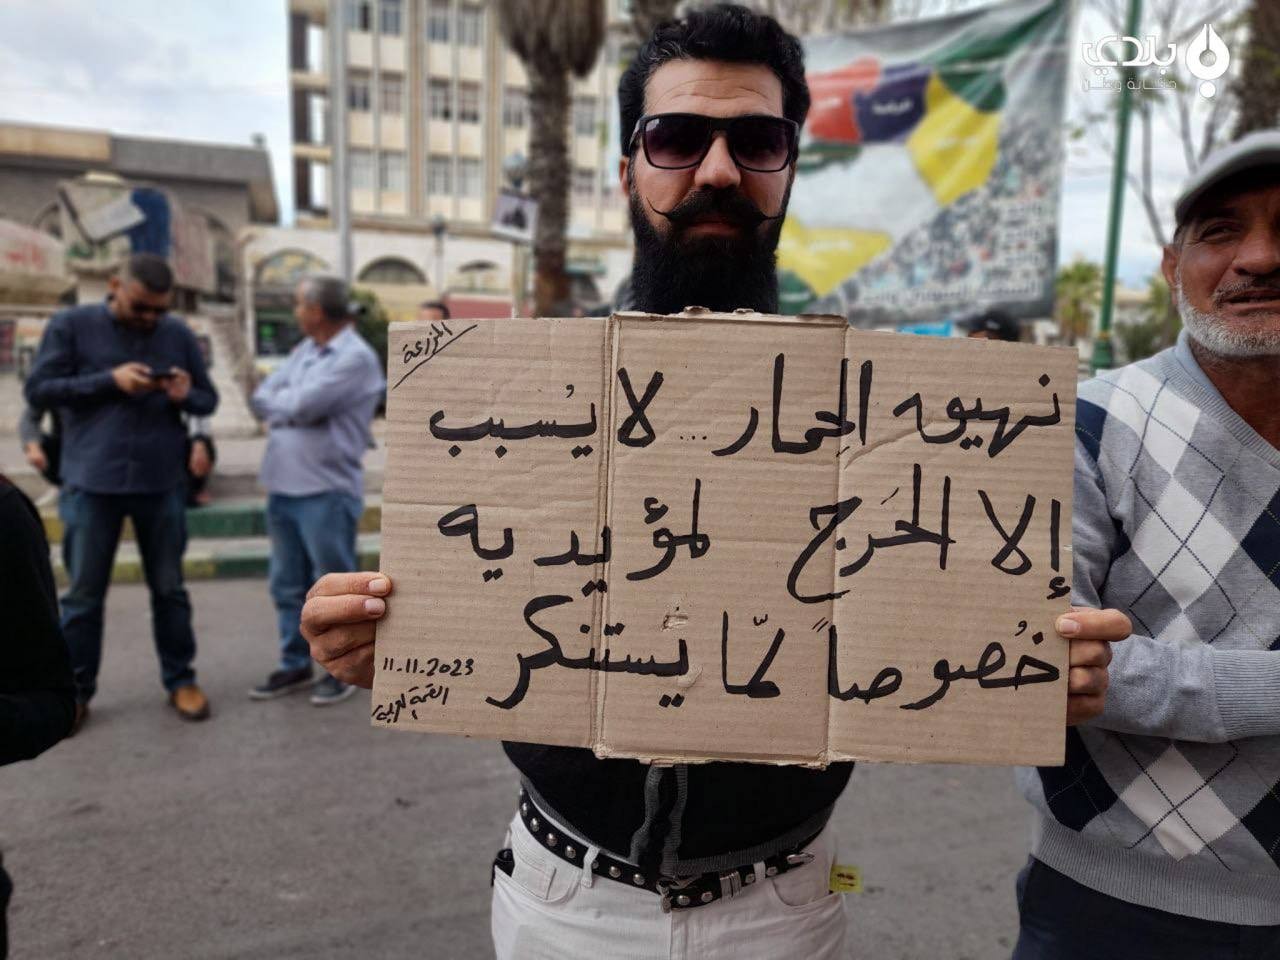 بلدي
حكاية وطن
المزرعة
نهيق الحمار... لا يُسبب
إلا الحَرج لمؤيديه
خُصوصاً لمّا يَستنكر
11.11.2023
القمة العربية